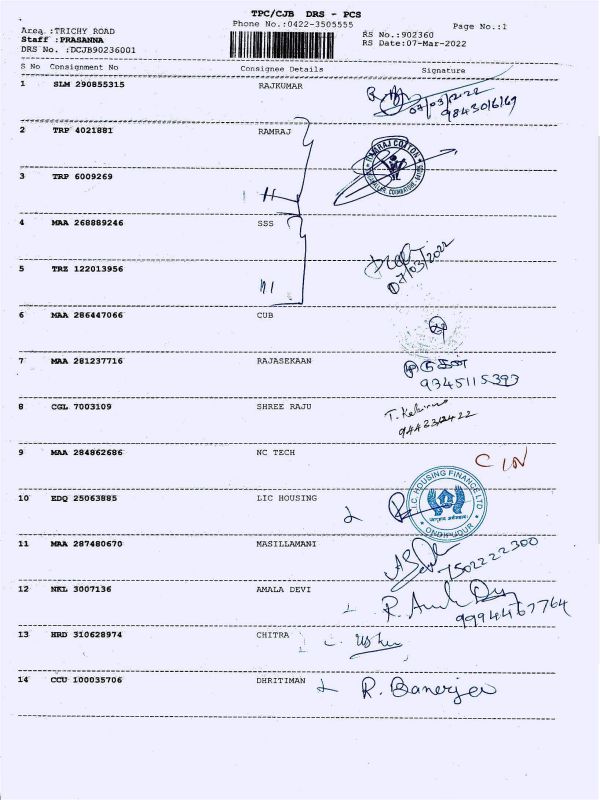 TPC/CJB DRS - PCS
Area :TRICHY ROAD Phone No.:0422-3505555 Page No.:1
Staff :PRASANNA RS No.:902360
DRS No. :DCJB90236001 RS Date:07-Mar-2022
S No Consignment No Consignee Details Signature
1 SLM 290855315 RAJKUMAR
07/03/2022
9843016169
2 TRP 4021881 RAMRAJ
RAMRAJ COTTON
3 TRP 6009269
4 MAA 268889246 SSS
07/03/2022
5 TRZ 122013956
6 MAA 286447066 CUB
7 MAA 281237716 RAJASEKAAN
9345115393
8 CGL 7003109 SHREE RAJU
9 MAA 284862686 NC TECH
10 EDQ 25063885 LIC HOUSING
L.I.C. HOUSING FINANCE LTD
ONDIPUDUR
11 MAA 287480670 MASILLAMANI
7502222300
12 NKL 3007136 AMALA DEVI
9994467764
13 HRD 310628974 CHITRA
14 CCU 100035706 DHRITIMAN R. Banerjee